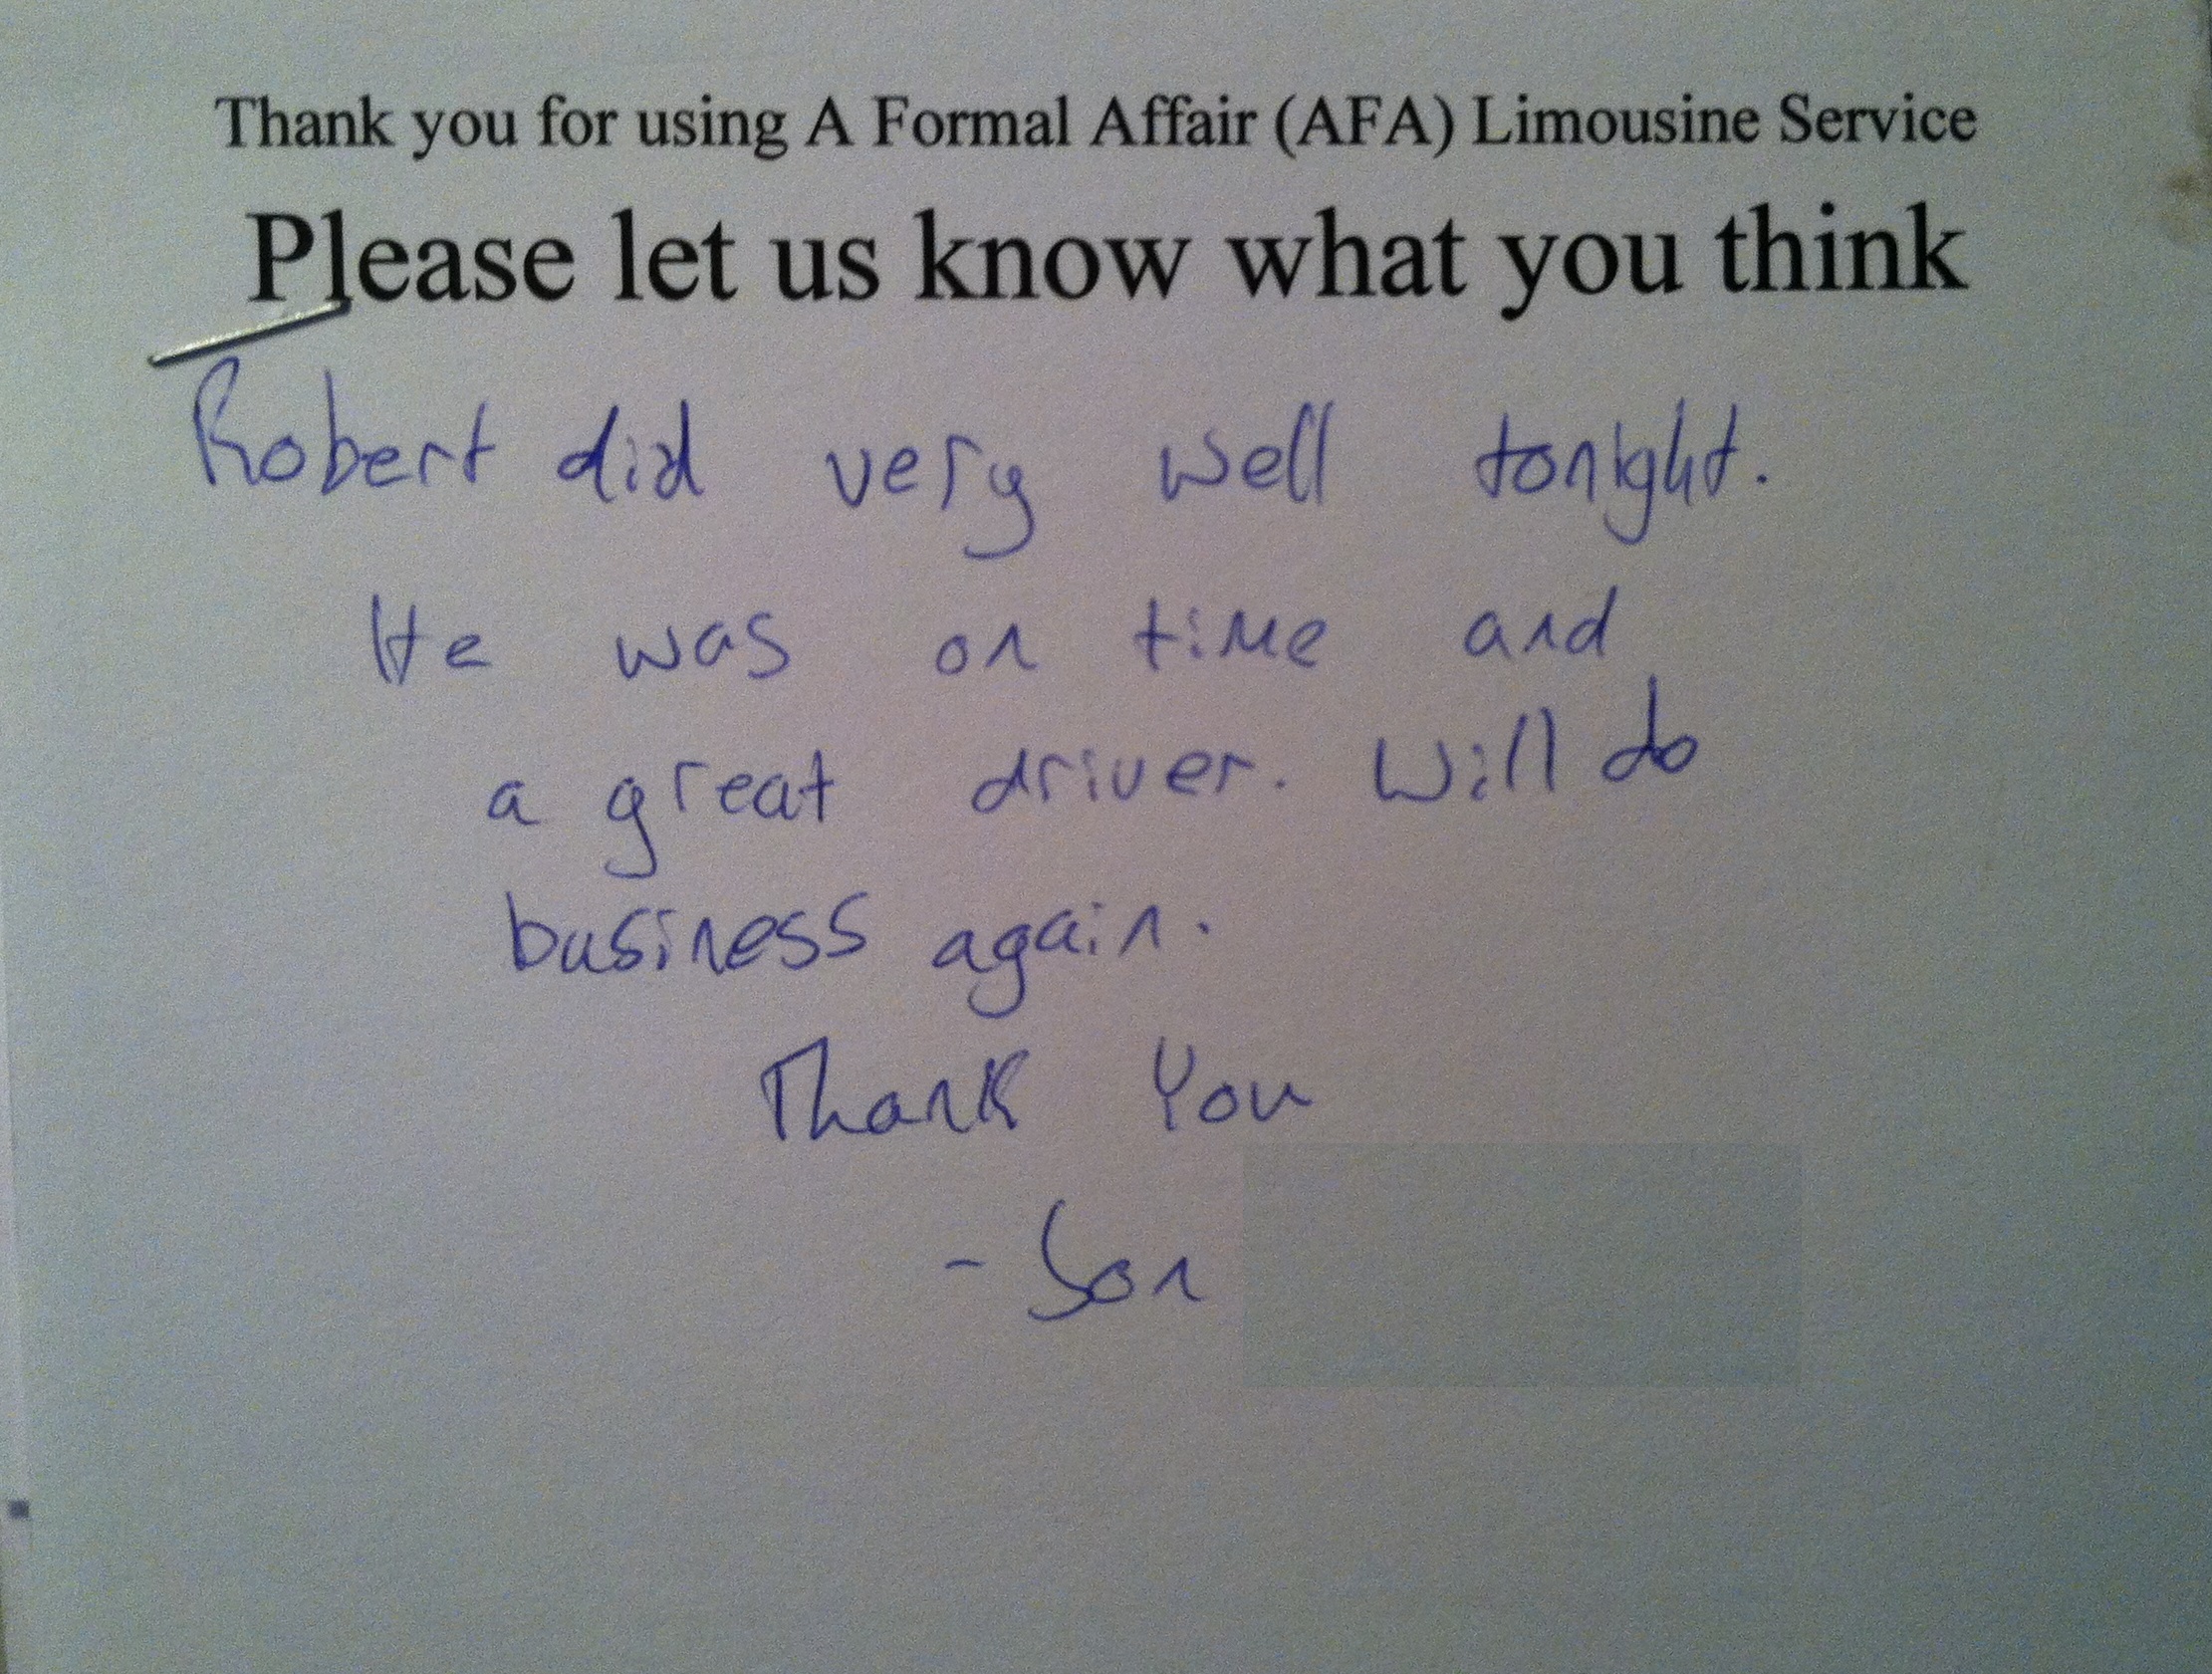 Thank you for using A Formal Affair (AFA) Limousine Service
Please let us know what you think
Robert did very well tonight.
He was on time and
a great driver. Will do
business again.
Thank You
- Son